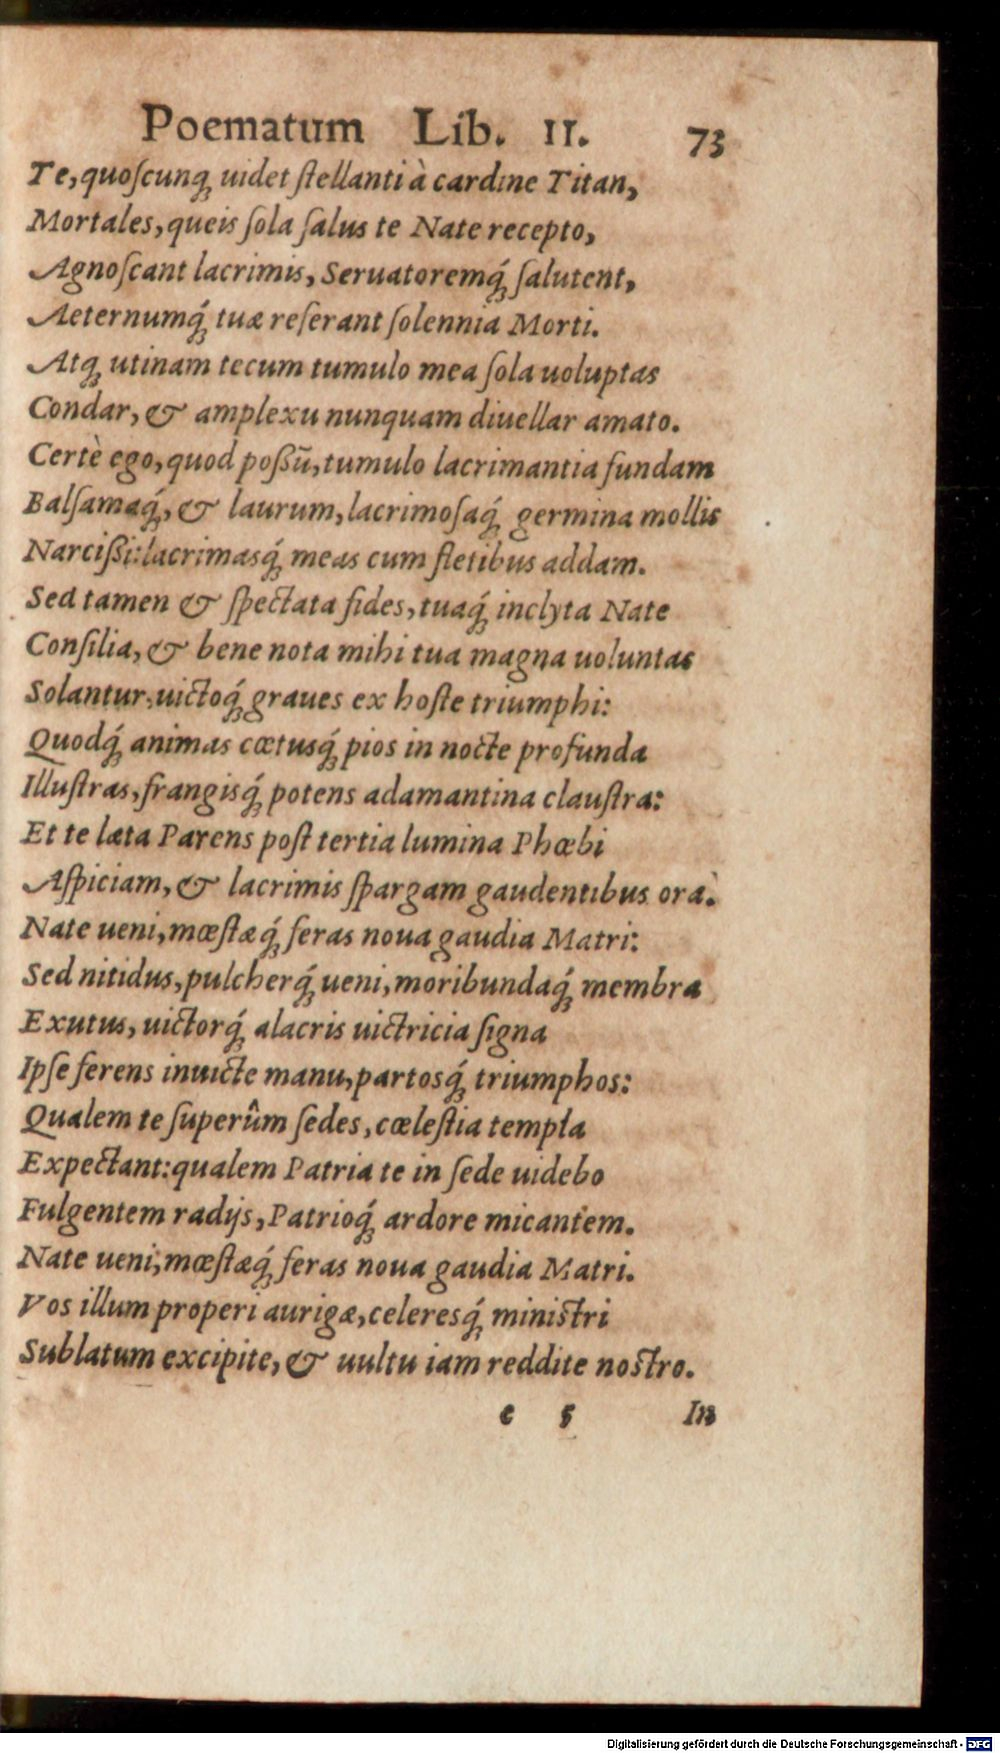 Poematum Lib. II. 73
Te, quoſcunq; uidet ſtellanti à cardine Titan,
Mortales, queis ſola ſalus te Nate recepto,
Agnoſcant lacrimis, Seruatoremq́; ſalutent,
Aeternumq́; tuæ referant ſolennia Morti.
Atq; utinam tecum tumulo mea ſola uoluptas
Condar, & amplexu nunquam diuellar amato.
Certè ego, quod poßũ, tumulo lacrimantia fundam
Balſamaq́;, & laurum, lacrimoſaq́; germina mollis
Narcißi: lacrimasq́; meas cum fletibus addam.
Sed tamen & ſpectata fides, tuaq́; inclyta Nate
Conſilia, & bene nota mihi tua magna uoluntas
Solantur, uictoq́; graues ex hoſte triumphi:
Quodq́; animas cœtusq́; pios in nocte profunda
Illuſtras, frangisq́; potens adamantina clauſtra:
Et te læta Parens poſt tertia lumina Phœbi
Aſpiciam, & lacrimis ſpargam gaudentibus ora.
Nate ueni, mœſtæq́; feras noua gaudia Matri:
Sed nitidus, pulcherq́; ueni, moribundaq́; membra
Exutus, uictorq́; alacris uictricia ſigna
Ipſe ferens inuicte manu, partosq́; triumphos:
Qualem te ſuperûm ſedes, cœleſtia templa
Expectant: qualem Patria te in ſede uidebo
Fulgentem radijs, Patrioq́; ardore micantem.
Nate ueni, mœſtæq́; feras noua gaudia Matri.
Vos illum properi aurigæ, celeresq́; miniſtri
Sublatum excipite, & uultu iam reddite noſtro.
e 5 In
Digitalisierung gefördert durch die Deutsche Forschungsgemeinschaft - DFG